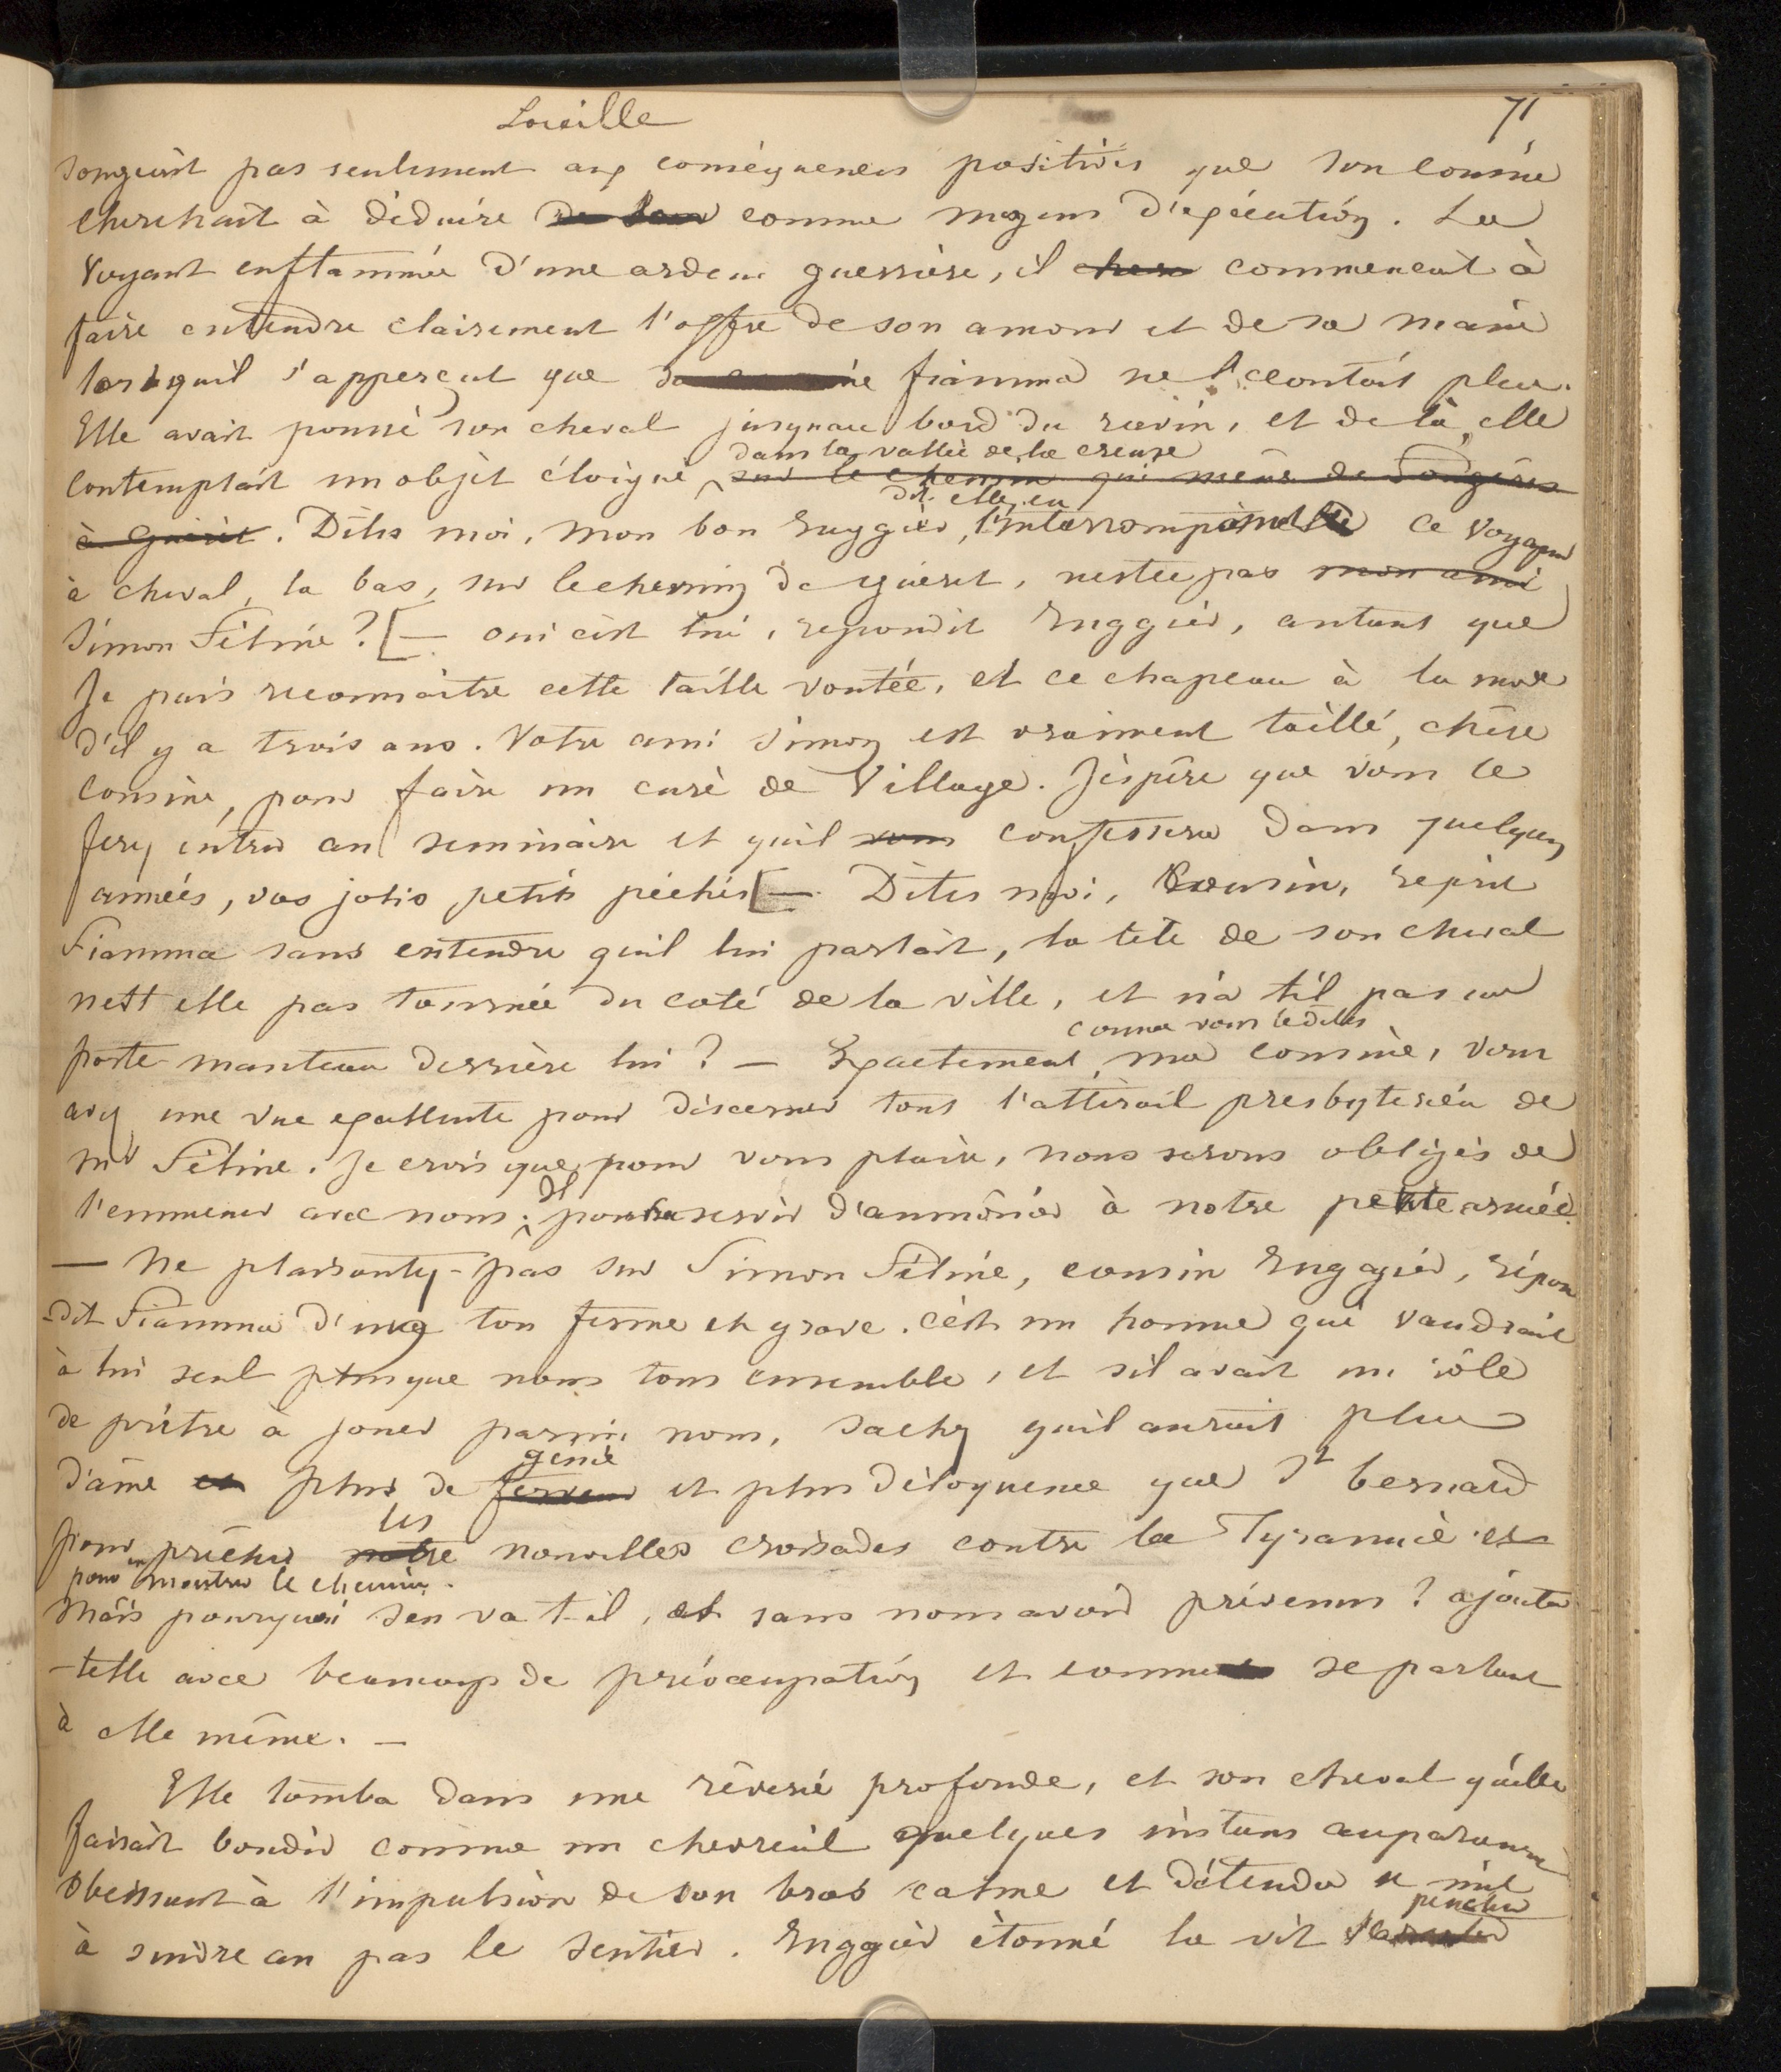 Lucille
71
songeait pas seulement aux conséquences positives que son cousin
cherchait à déduire comme moyens d'exécution. La
voyant enflammée d'une ardeur guerrière, il cher commencait à
faire entendre clairement l'offre de son amour et de sa main
lorsquil s'apperçut que sa cousine fiamma ne l'ecoutait plus.
Elle avait poussé son cheval jusqu'au bord du ravin, et de là, elle
dans la vallée de la creuse
contemplait un objet éloigné sur le chemin qui mène de Fougères
dit-elle, en
à Guéret. Dites moi, mon bon Ruggier, l'interrompant ce voyageur
à cheval, la bas, sur le chemin de guéret, nestce pas mon ami
Simon Féline? [— oui cest lui, repondit Ruggier, autant que
Je puis reconnaitre cette taille voutée, et ce chapeau à la mode
d'il y a trois ans. Votre ami Simon est vraiment taillé, chère
cousine, pour faire un curé de Village. J'espère que vous le
ferez entrer au seminaire et quil vous confessera dans quelques
années, vos jolis petits péchés [— Dites moi, Cousin, reprit
Fiamma sans entendre quil lui parlait, la tete de son cheval
nest elle pas tournée du coté de la ville, et n'a t'il pas un
comme vous le dites
porte-manteau derrière lui? — Exactement, ma cousine, vous
avez une vue excellente pour discerner tout l'attirail presbyterien de
Mr Féline. Je crois que, pour vous plaire, nous serons obligés de
l'emmener avec nous; il pourra servir d'aumônier à notre petite armée.
— Ne plaisantez-pas sur Simon Féline, cousin Ruggier, répon
-dit Fiamma d'un ton ferme et grave. c'est un homme qui vaudrait
à lui seul plus que nous tous ensemble, et s'il avait un rôle
de prêtre à jouer parmi nous, sachez quil aurait plus
génie
d'ame et plus de ferveur et plus d'éloquence que St bernard
les
pour prêcher notre nouvelles croisades contre la Tyrannie et
pour en montrer le chemin.
Mais pourquoi s'en va t-il, et sans nous avoir prévenus? ajouta
-t elle avec beaucoup de préoccupation et comme se parlant
à elle même. —
Elle tomba dans une rêverie profonde, et son cheval qu'elle
faisait bondir comme un chevreuil quelques instans auparavant
obeissant à l'impulsion de son bras calme et détendu se mit
pencher
à suivre au pas le sentier. Ruggier étonné la vit